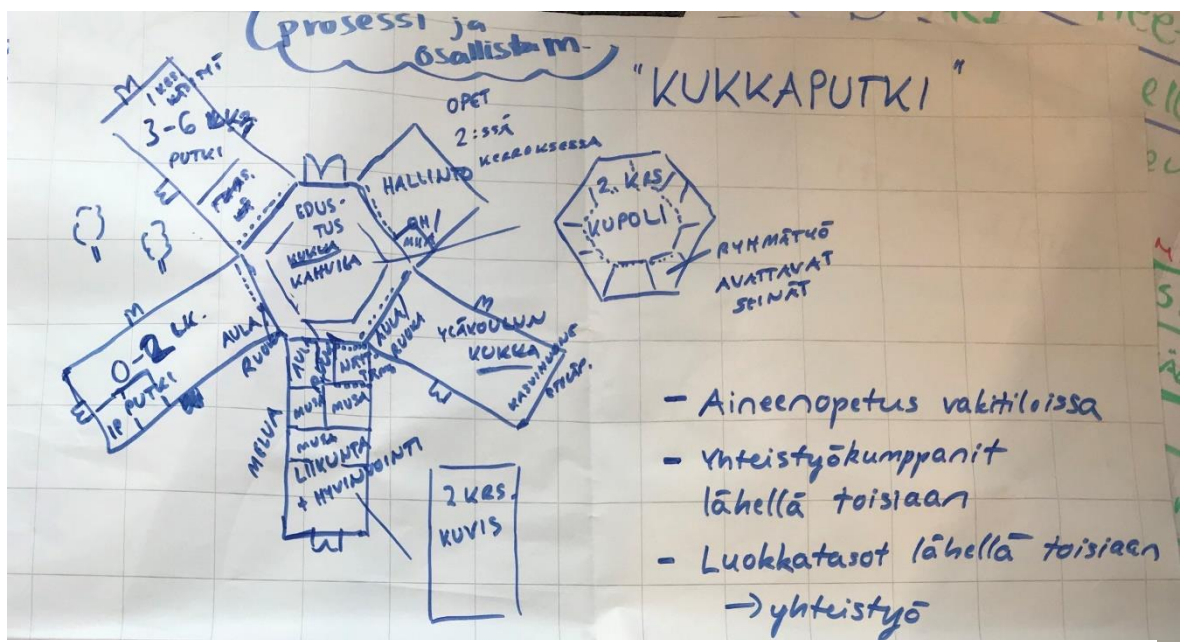 prosessi ja
osallistam.
"KUKKAPUTKI"
1 KRS.
3-6 LKS.
PUTKI
OPET
2:SSÄ
KERROKSESSA
HALLINTO
EDUS-
TUS
KUKKA
KAHVILA
2. KRS
KUPOLI
RYHMÄTYÖ
AVATTAVAT
SEINÄT
0-2 LK.
IP PUTKI
AULA
RUOKA
AULA
RUOKA
YLÄKOULUN
KUKKA
KASVIHUONE
MUSA
MUSA
MUSA
MELUA
LIIKUNTA
+ HYVINVOINTI
2 KRS.
KUVIS
- Aineenopetus vakitiloissa
- Yhteistyökumppanit
lähellä toisiaan
- Luokkatasot lähellä toisiaan
→ yhteistyö